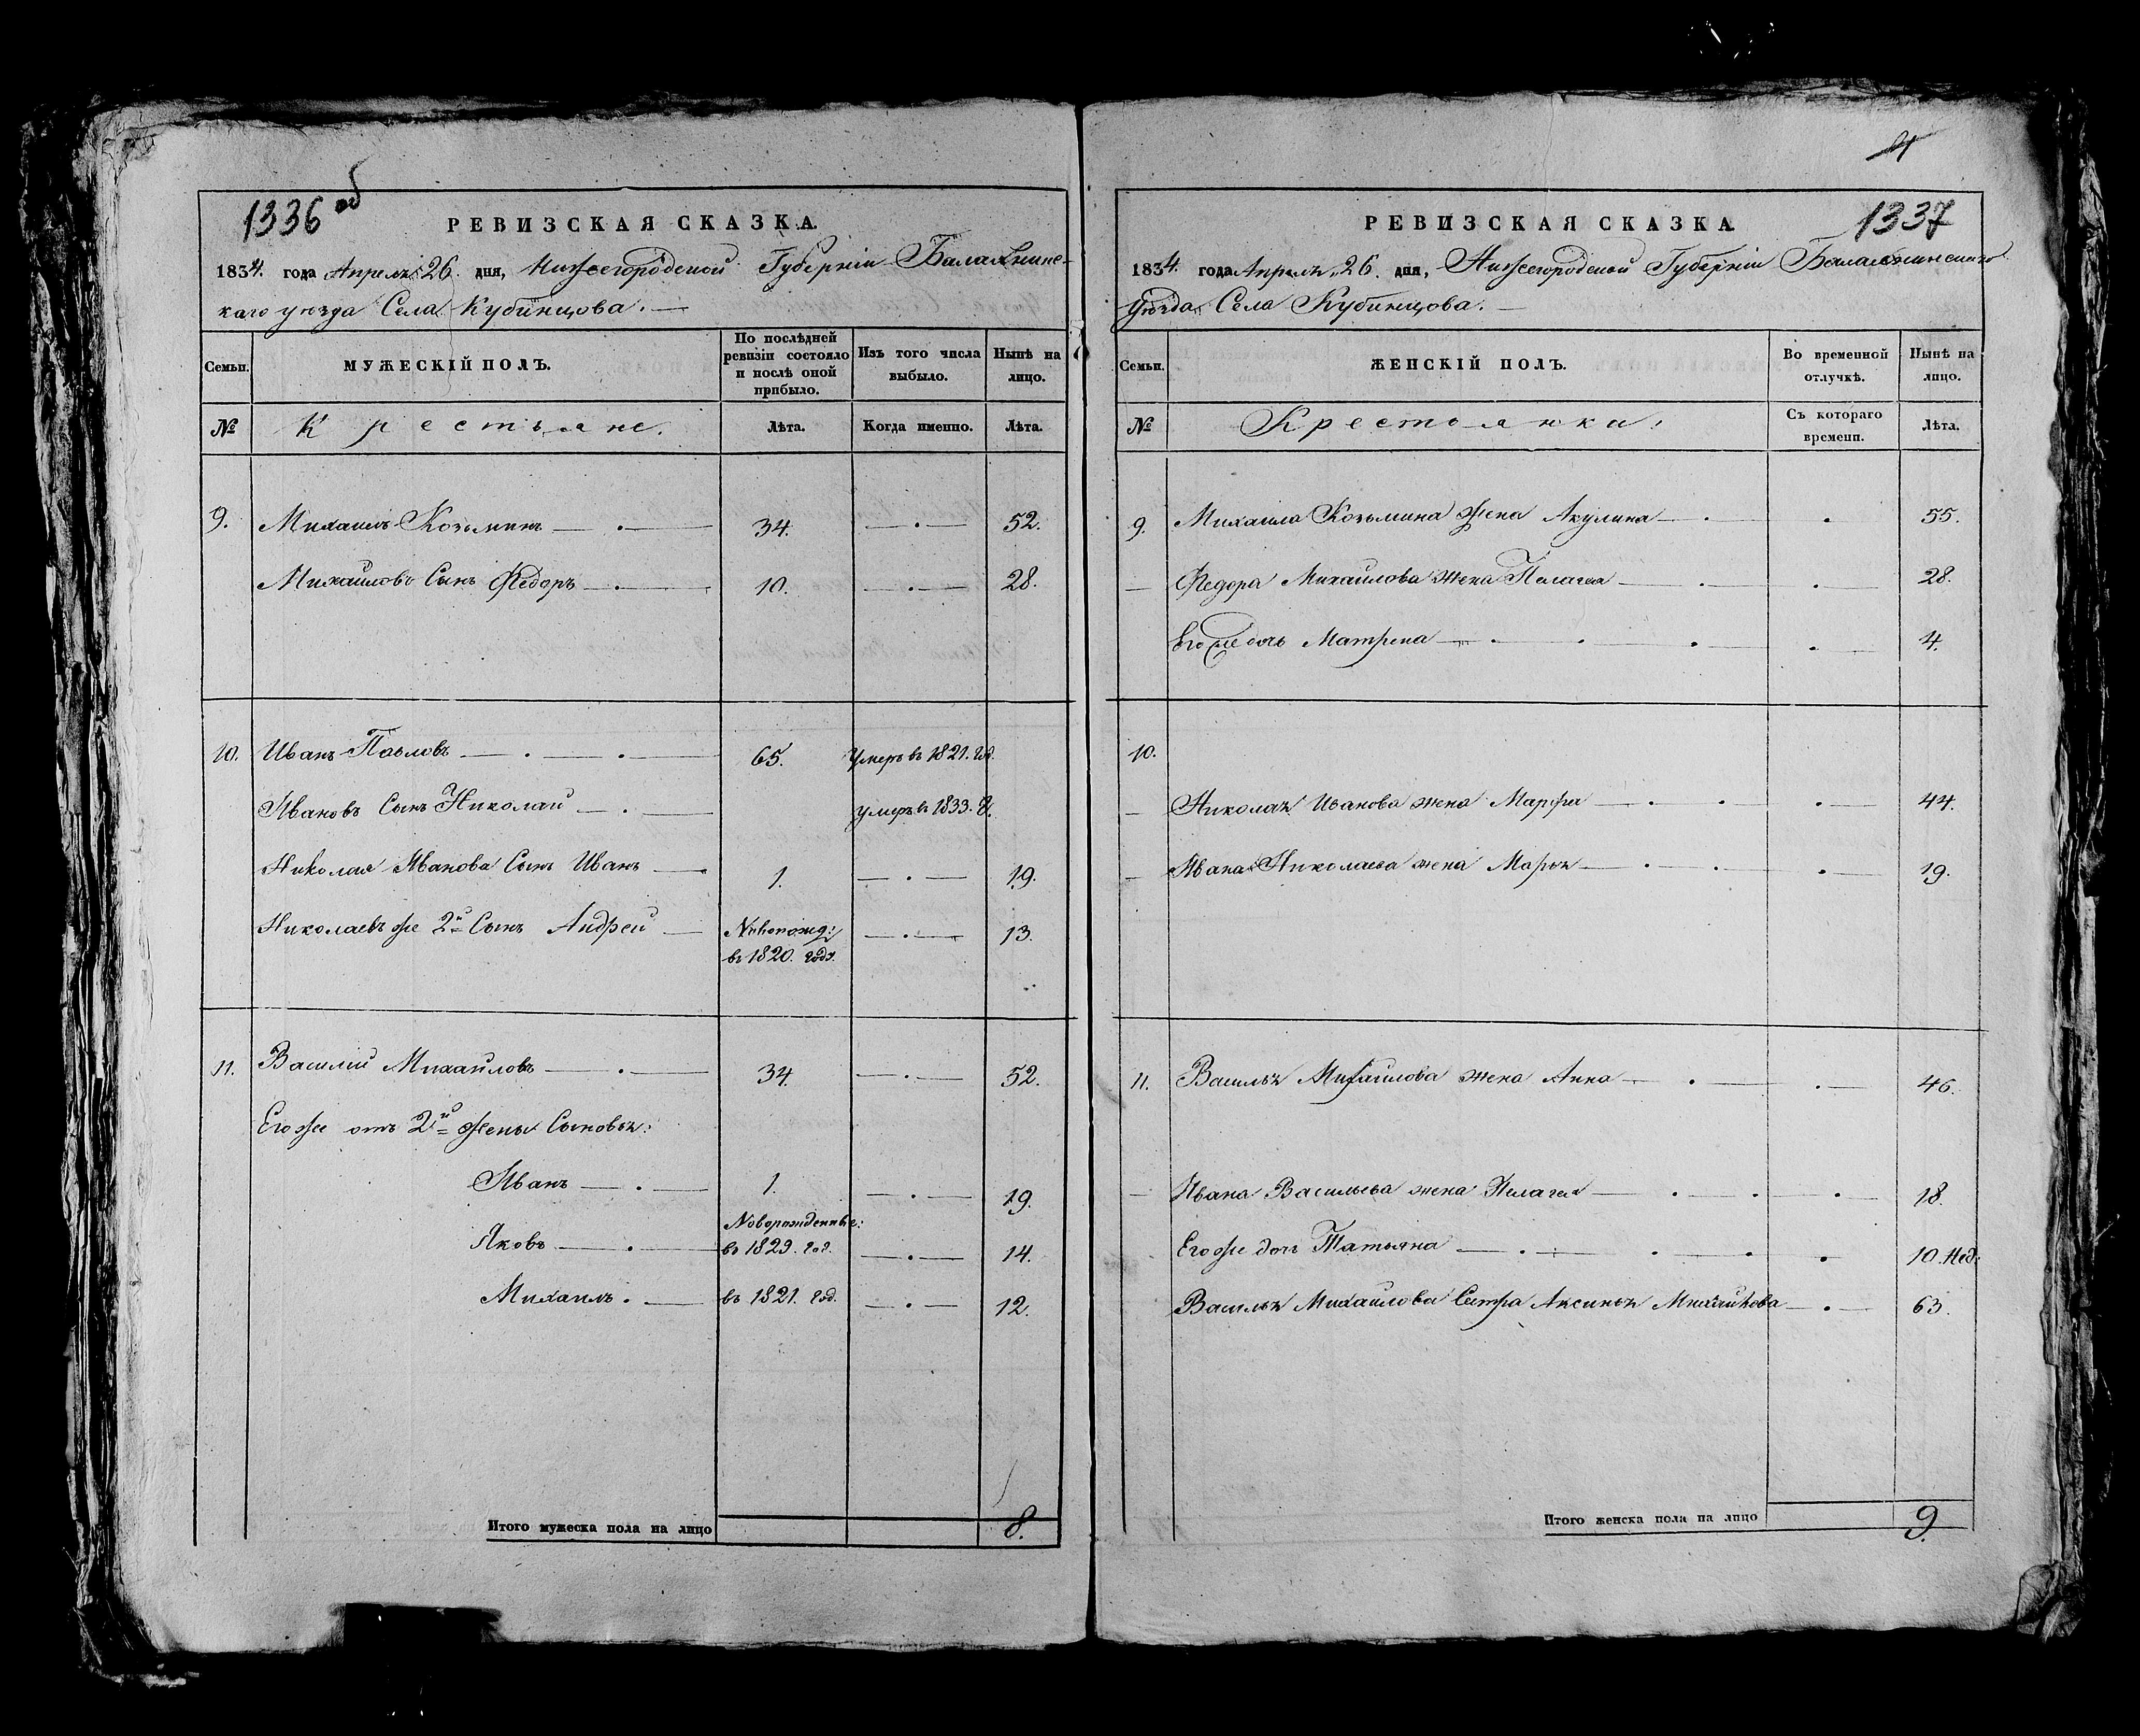 1336 об
РЕВИЗСКАЯ СКАЗКА.
1834. года Апреля 26. дня, Нижегородской Губерніи Балахнинс-
каго уѣзда Села Кубинцова.
Семьи.
МУЖЕСКІЙ ПОЛЪ.
По послѣдней ревизіи состояло и послѣ оной прибыло.
Изъ того числа выбыло.
Нынѣ на лицо.
№ Крестьяне. Лѣта. Когда именно. Лѣта.
9. Михаилъ Козьминъ 34. 52.
Михайловъ Сынъ Федоръ 10. 28.
10. Иванъ Павловъ 65. Умеръ въ 1821. год.
Ивановъ Сынъ Николай умеръ в 1833. г.
Николая Иванова Сынъ Иванъ 1. 19.
Николаевъ же 2й Сынъ Андрей Новорожд: 13.
въ 1820. году.
11. Василий Михайловъ 34. 52.
Его же отъ 2й жены Сыновья:
Иванъ 1. 19.
Новорожденные:
Яковъ въ 1829. год. 14.
Михаилъ въ 1821. год. 12.
Итого мужеска пола на лицо 8.
4
1337
РЕВИЗСКАЯ СКАЗКА
1834. года Апреля 26. дня, Нижегородской Губерніи Балахнинскаго
Уѣзда Села Кубинцова.
Семьи.
ЖЕНСКІЙ ПОЛЪ.
Во временной отлучкѣ.
Нынѣ на лицо.
№ Крестьянки. Съ котораго времени. Лѣта.
9. Михаила Козьмина жена Акулина 55.
Федора Михайлова жена Пелагея 28.
Его же дочь Матрена 4.
10.
Николая Иванова жена Марфа 44.
Ивана Николаева жена Марья 19.
11. Василья Михайлова жена Анна 46.
Ивана Васильева жена Пелагея 18.
Его же дочь Татьяна 10. Нед:
Василья Михайлова Сестра Аксинья Михайлова 63.
Итого женска пола на лицо 9.